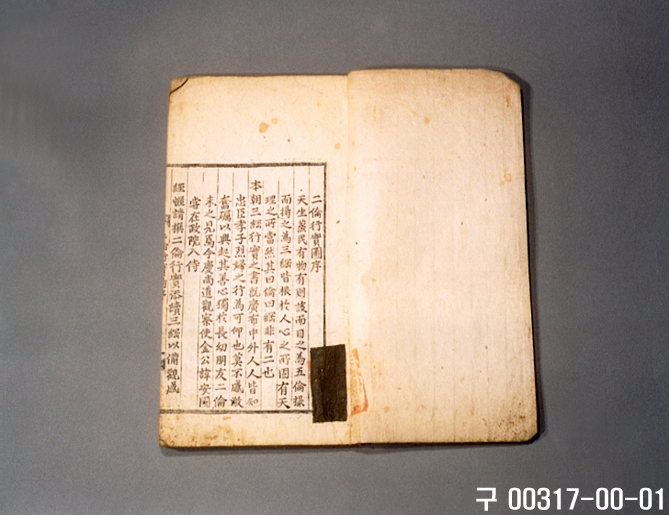 二倫行實圖序
天生蒸民有物有則該而目之為五倫撮
而揚之為三綱皆根於人心之所固有天
理之所當然其曰倫曰綱非有二也
本朝三綱行實之書旣廣布中外人人皆知
忠臣孝子烈婦之行為可仰也莫不感激
奮礪以興起其善心獨於長幼朋友二倫
未之見焉今慶尚道觀察使金公諱安國
嘗在政院入侍
經幄請撰二倫行實添續三綱以備觀感
구 00317-00-01